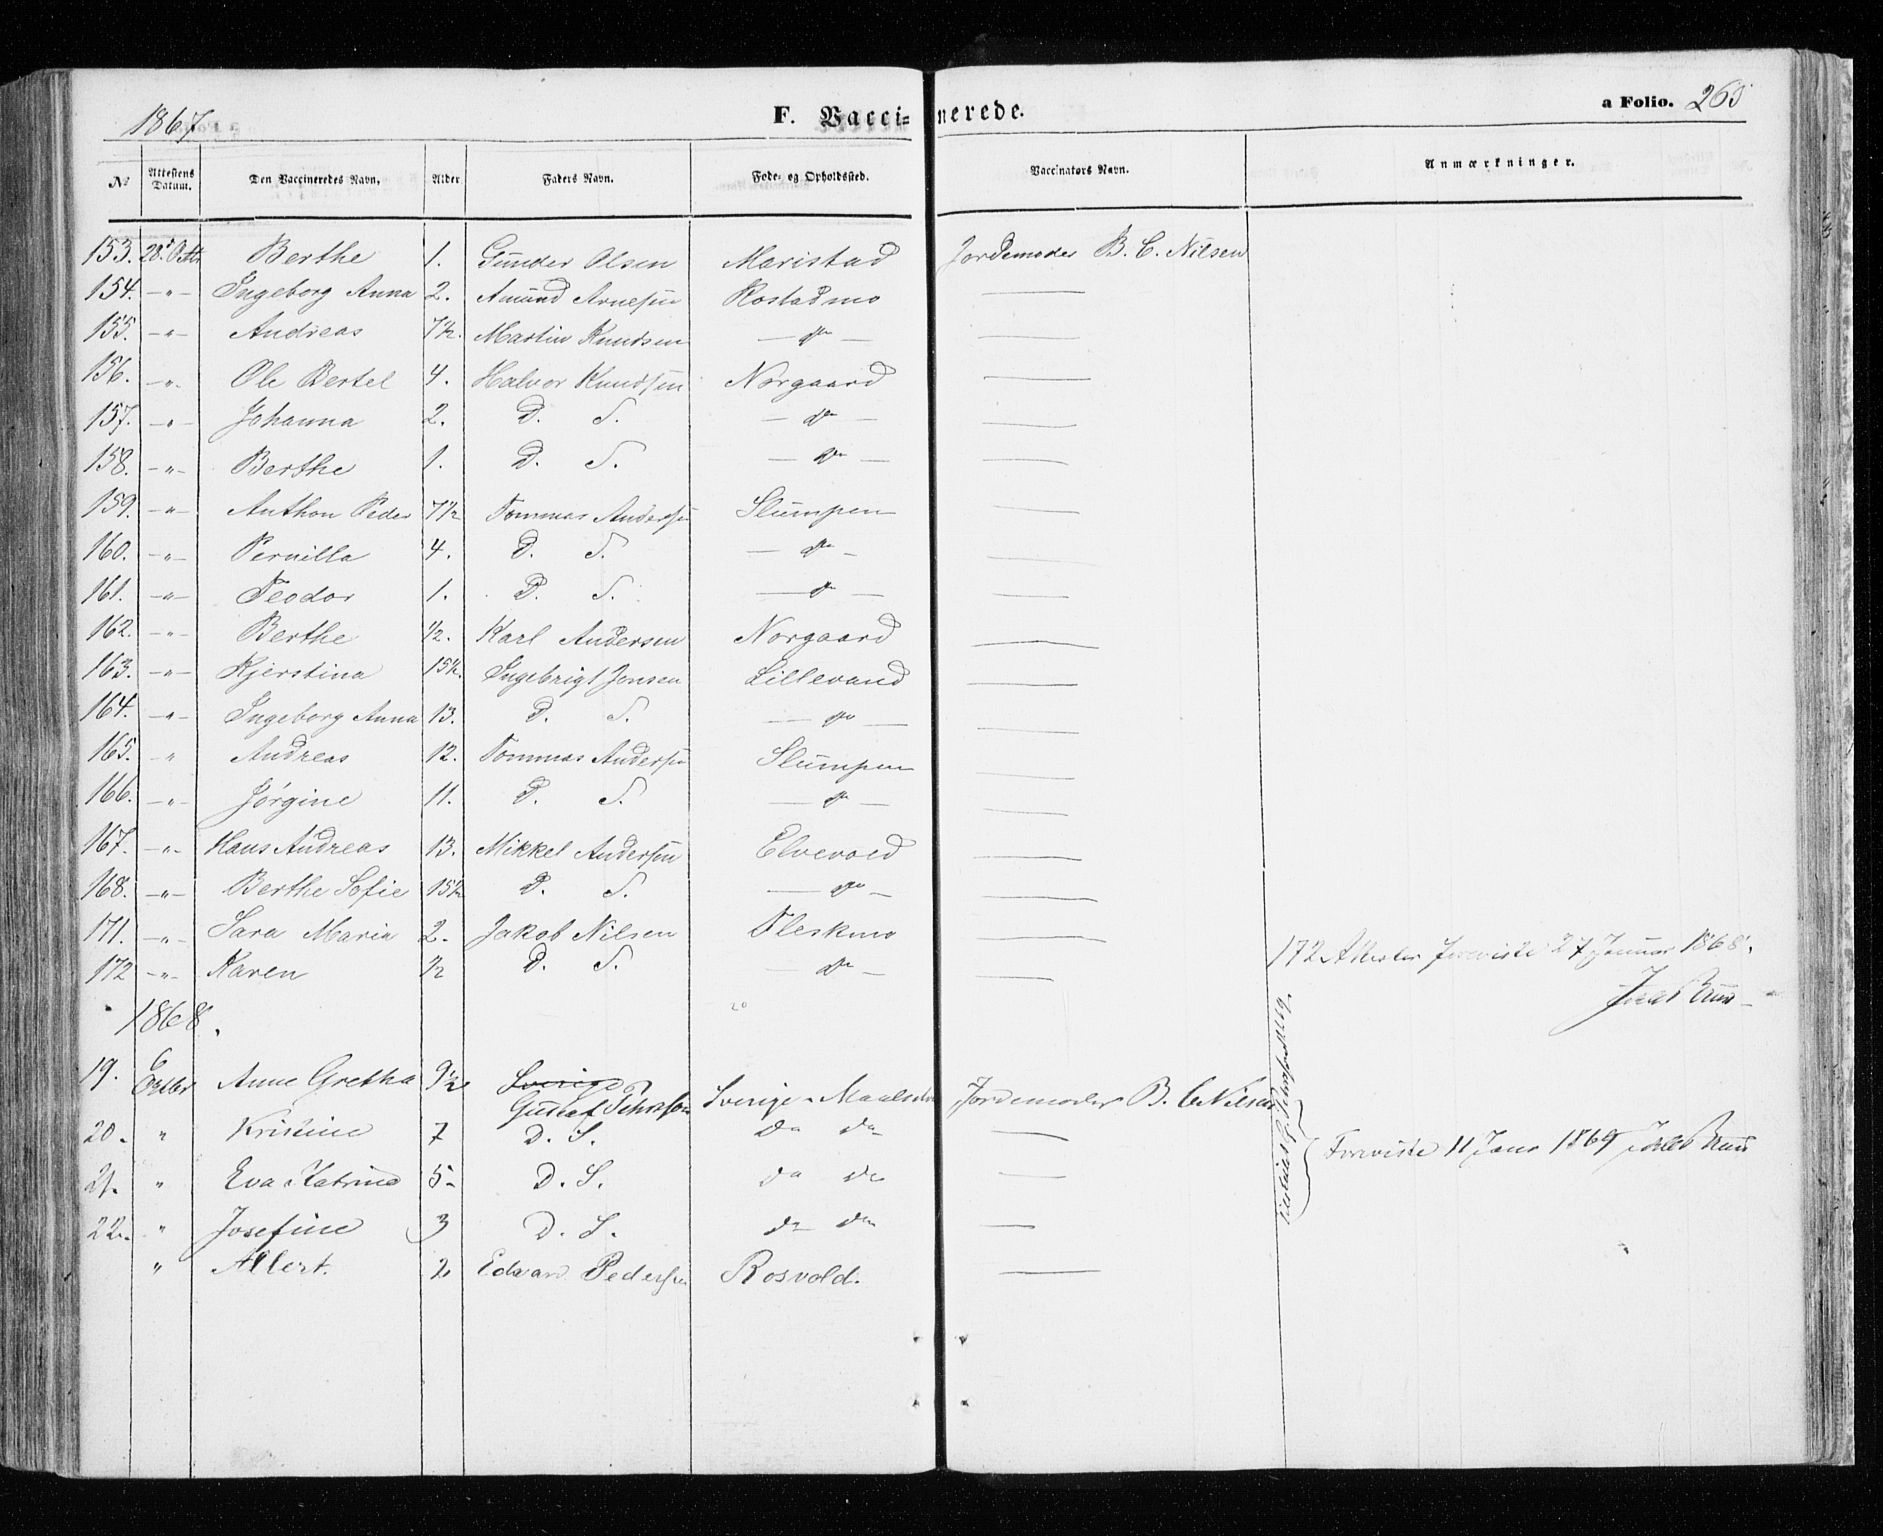 1867
F. Vaccinerede.
a Folio. 265
№ Attestens Datum. Den Vaccineredes Navn. Alder Faders Navn. Føde- og Opholdssted. Vaccinators Navn. Anmærkninger.
153. 28. Octbr Berthe 1. Gunder Olsen Maristad Jordemoder B. C. Nilsen
154. —"— Ingeborg Anna 2. Amund Arnesen Rostadmo ——
155. —"— Andreas 7½. Martin Knudsen — do — ——
156. —"— Ole Bertel 4. Halvor Knudsen Norgaard ——
157. —"— Johanna 2. D. S. — do — ——
158. —"— Berthe 1. D. S. — do — ——
159. —"— Anthon Peder 7½ Tommas Andersen Slumpen ——
160. —"— Pernilla 4. D. S. — do — ——
161. —"— Teodor 1. D. S. — do — ——
162. —"— Berthe ½. Karl Andersen Norgaard ——
163. —"— Kjerstina 15½. Ingebrigt Jensen Lillevand ——
164. —"— Ingeborg Anna 13. D. S. — do — ——
165. " Andreas 12. Tommas Andersen Slumpen ——
166. —"— Jørgine 11. D. S. — do — ——
167. —"— Hans Andreas 13. Mikkel Andersen Elvevold ——
168. —"— Berthe Sofie 15½ D. S. — do — ——
171. —"— Sara Maria 2. Jakob Nilsen Fleskmo ——
172 —"— Karen ½ D. S. — do — ——
172 Attester foreviste 27 Januar 1868.
1868.
19. 6 Octbr Anne Gretha 9½ Sverige Gustaf Sverige - Maalselv Jordemoder B. C Nilsen
20. " Kristine 7 D. S. do do ——
Foreviste 11 Janr 1869
21. " Eva Katrine 5 D. S. do do ——
22. " Josefine 3 D. S. do do ——
" Albert. 2 Edvard Pedersen Rosvold. ——